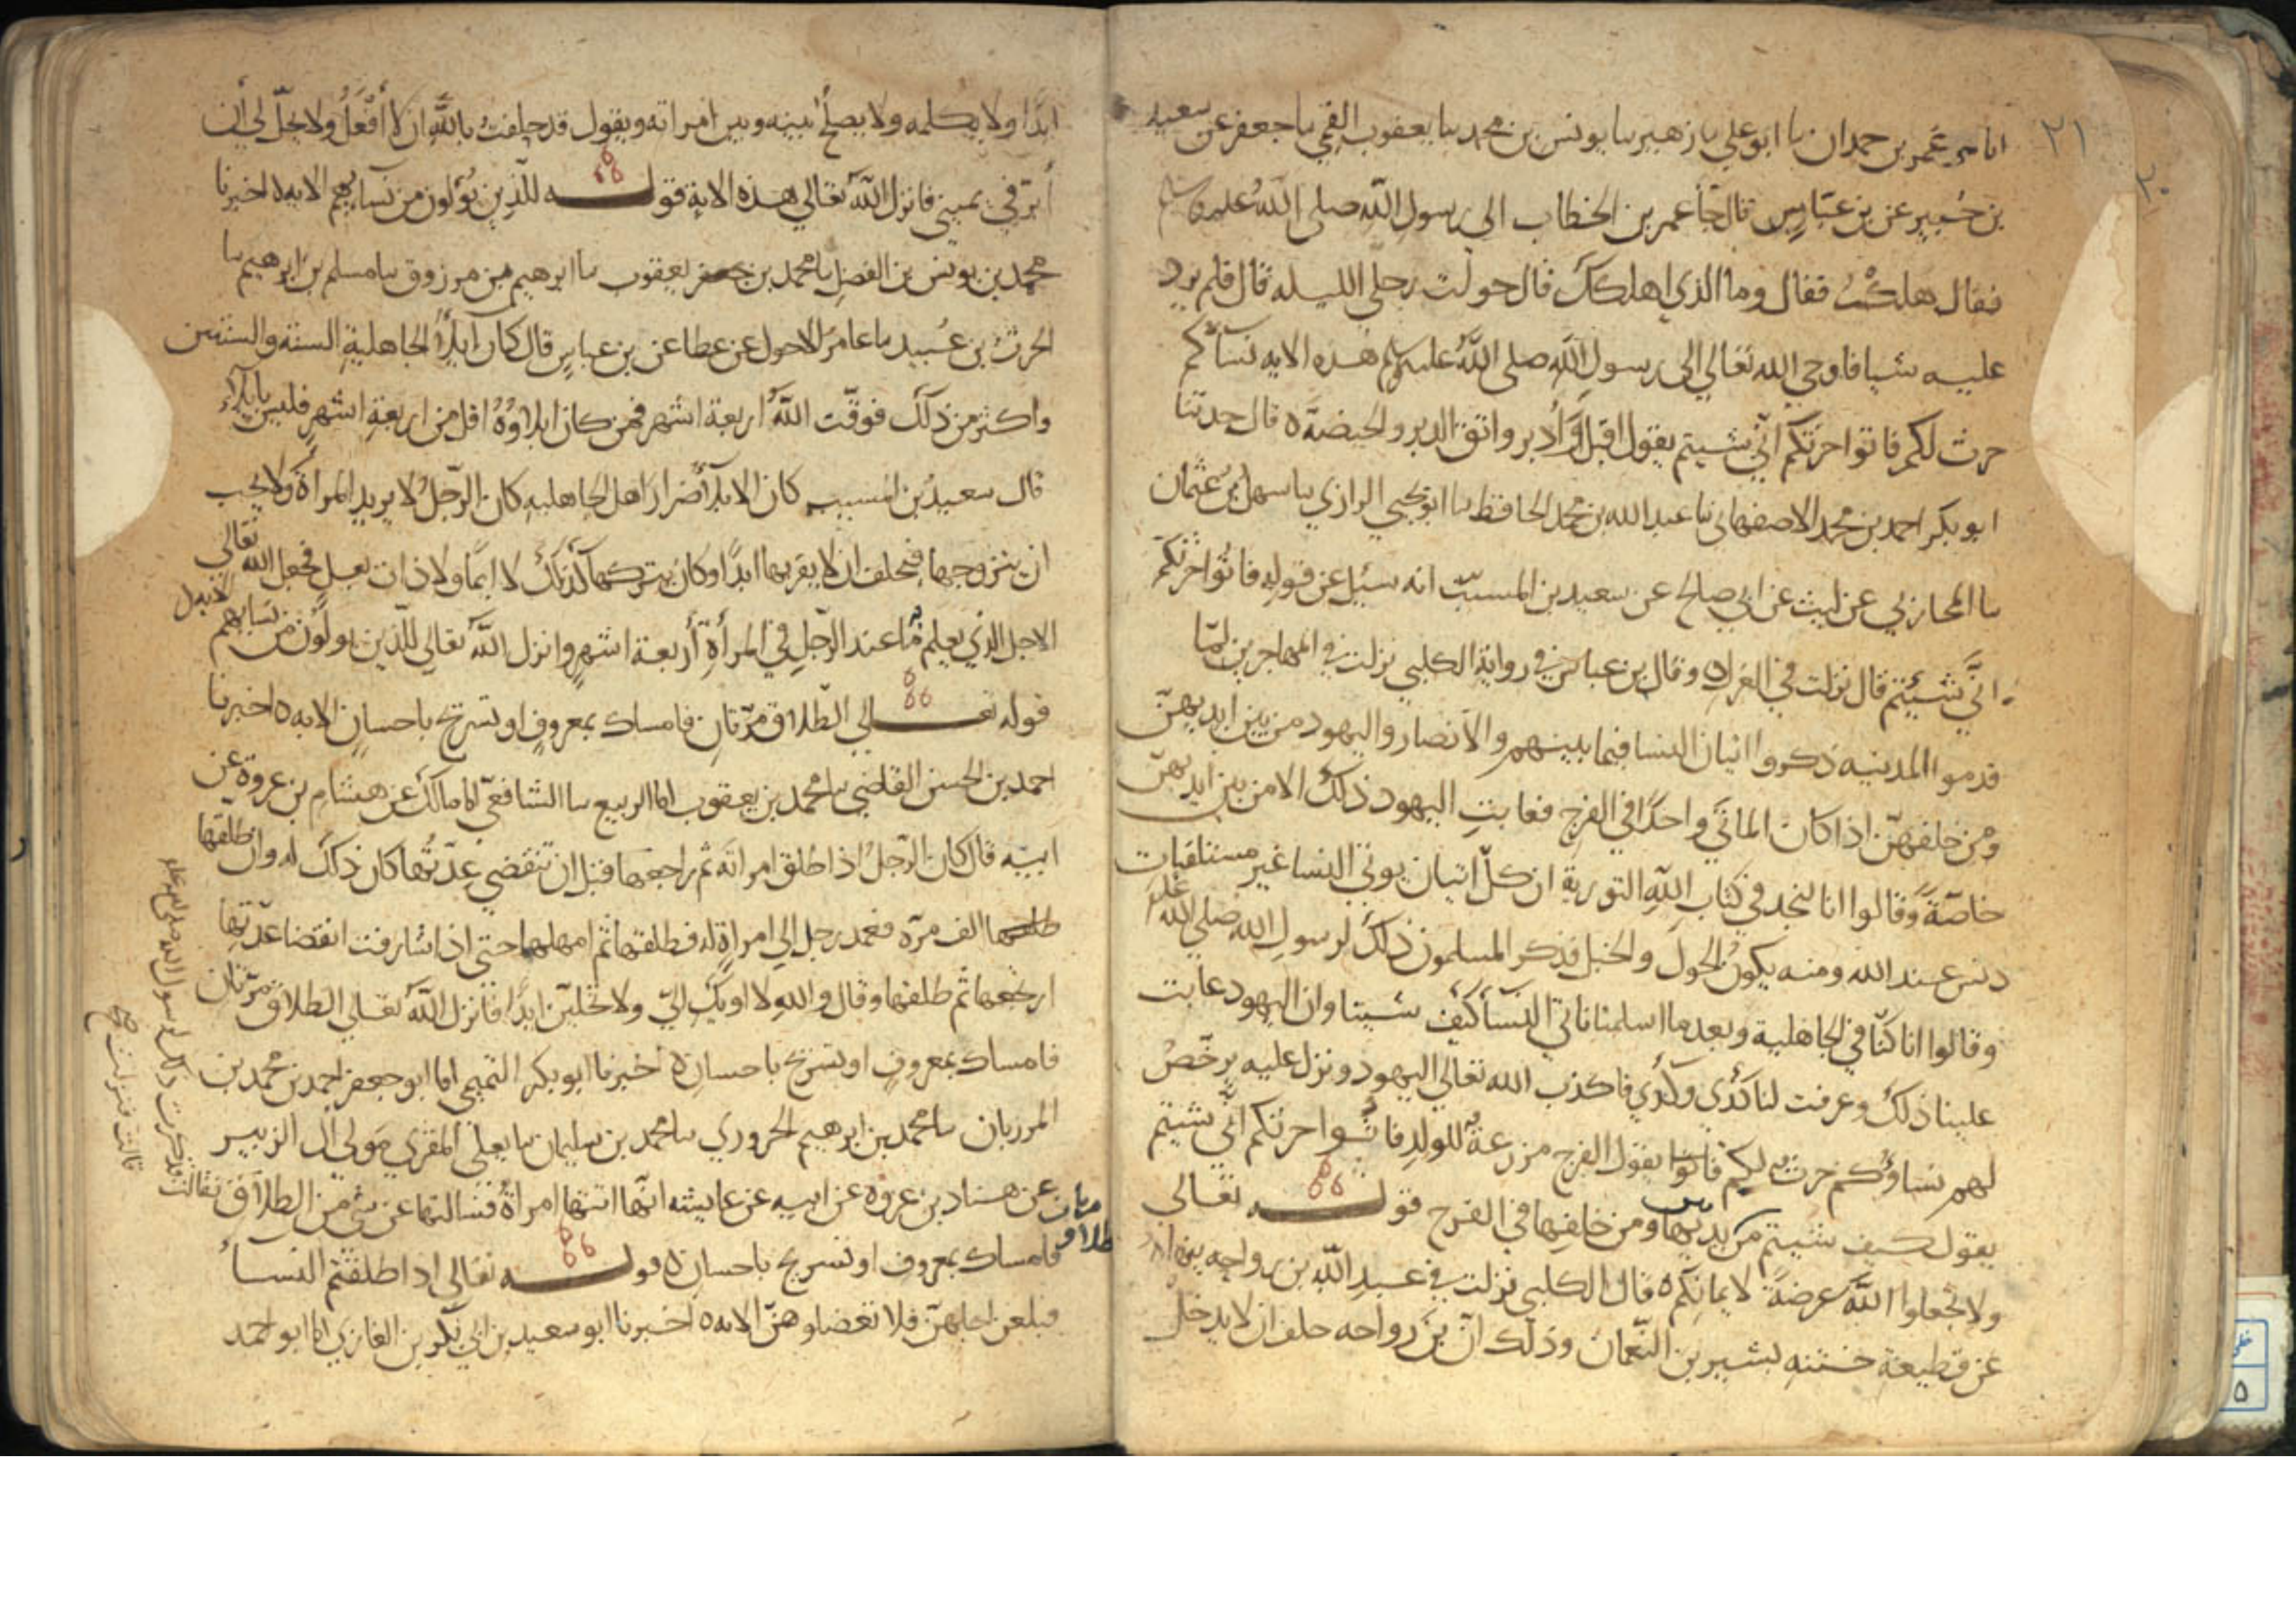 ٢١
٢٠
انا عمر بن حمدان نا ابو علي نا زهير نا يونس بن محمد نا يعقوب القمي نا جعفر عن سعيد
بن جبير عن بن عباس قال جا عمر بن الخطاب الى رسول الله صلى الله عليه وسلم
فقال هلكت فقال وما الذي اهلكك قال حولت رحلي الليله قال فلم يرد
عليه شيا فاوحى الله تعالى الى رسول الله صلى الله عليه وسلم هذه الايه نسآكم
حرث لكم فاتوا حرثكم انى شيتم يقول اقبل وأدبر واتق الدبر والحيضة ه قال حدثنا
ابو بكر احمد بن محمد الاصفهاني نا عبد الله بن محمد الحافظ نا ابو يحيى الرازي نا سهل بن عثمان
نا المحاربي عن ليث عن ابي صالح عن سعيد بن المسيب انه سيل عن قوله فاتوا حرثكم
انى شئتم قال نزلت في العزل ه وقال بن عباس في رواية الكلبي نزلت في المهاجرين لما
قدموا المدينيه ذكروا اتيان النسا فيما بينهم والانصار واليهود من بين ايديهن
ومن خلفهن اذا كان الماتى واحدا في الفرج فعابت اليهود ذلك الا من بين ايديهن
خاصة وقالوا انا لنجد في كتاب الله التورية ان كل اتيان يوتى النسا غير مستلقيات
دنس عند الله ومنه يكون الحول والخبل فذكر المسلمون ذلك لرسول الله صلى الله عليه
وقالوا انا كنا في الجاهلية وبعد ما اسلمنا ناتي النسآ كيف شينا وان اليهود عابت
علينا ذلك وزعمت لنا كذى وكذي فاكذب الله تعالى اليهود ونزل عليه يرخص
لهم نساؤكم حرث لكم فاتوا يقول الفرج مزرعة للولد فاتوا حرثكم انى شيتم
يقول كيف شيتم من بين يديها ومن خلفها في الفرج قوله تعالى
ولا تجعلوا الله عرضة لايمانكم ه قال الكلبي نزلت في عبد الله بن رواحه ينهاه
عن قطيعة ختنه بشير بن النعمان وذلك ان بن رواحه حلف ان لا يدخل
ابدا ولا يكلمه ولا يصلح بينه وبين امراته ويقول قد حلفت بالله ان لا أفعل ولا يحل لي أن
أبر في يميني فانزل الله تعالى هذه الاية قوله للذين يؤلون من نسآيهم الايه ه اخبرنا
محمد بن يونس بن الفضل نا محمد بن يعقوب نا ابرهيم بن مرزوق نا مسلم بن ابرهيم نا
الحرث بن عبيد نا عامر الاحول عن عطا عن بن عباس قال كان ايلآ الجاهلية السنة والسنتين
واكثر من ذلك فوقت الله اربعة اشهر فمن كان ايلاوه اقل من اربعة اشهر فليس بايلآء
قال سعيد بن المسيب كان الايلآ ضرار اهل الجاهليه كان الرجل لا يريد المرأة ولا يحب
ان يتزوجها فيحلف ان لا يقربها ابدا وكان يتركها كذلك لا ايما ولا ذات بعل فجعل الله تعالى
الاجل الذي يعلم به ما عند الرجل في المرأة أربعة اشهر وانزل الله تعالى للذين يولون من نسايهم الايه
قوله تعالى الطلاق مرتان فامساك بمعروف او تسريح باحسان الايه ه اخبرنا
احمد بن الحسن القاضي نا محمد بن يعقوب انا الربيع نا الشافعي انا مالك عن هشام بن عروة عن
ابيه قال كان الرجل اذا طلق امراته ثم راجعها قبل ان تنقضي عدتها كان ذلك له وان طلقها
الف مرة فعمد رجل الى امراة له فطلقها ثم امهلها حتى اذا شارفت انقضا عدتها
ارتجعها ثم طلقها وقال والله لا اويك الي ولا تحلين ابدا فانزل الله تعالى الطلاق مرتان
فامساك بمعروف او تسريح باحسان ه اخبرنا ابو بكر التميمي انا ابو جعفر احمد بن محمد بن
المرزبان نا محمد بن ابرهيم الحروري نا محمد بن سليمان نا يعلى المقري مولى ال الزبير
عن هشاد بن عروه عن ابيه عن عايشه انها اتتها امراة فسالتها عن شي من الطلاق فقالت
فذكرت ذلك لرسول الله صلى الله عليه
قالت فنزلت
الطلاق مرتان
فامساك بمعروف او تسريح باحسان ه قوله تعالى اذا طلقتم النسآ
فبلغن اجلهن فلا تعضلوهن الايه ه اخبرنا ابو سعيد بن ابي بكر بن الغازي انا ابو احمد